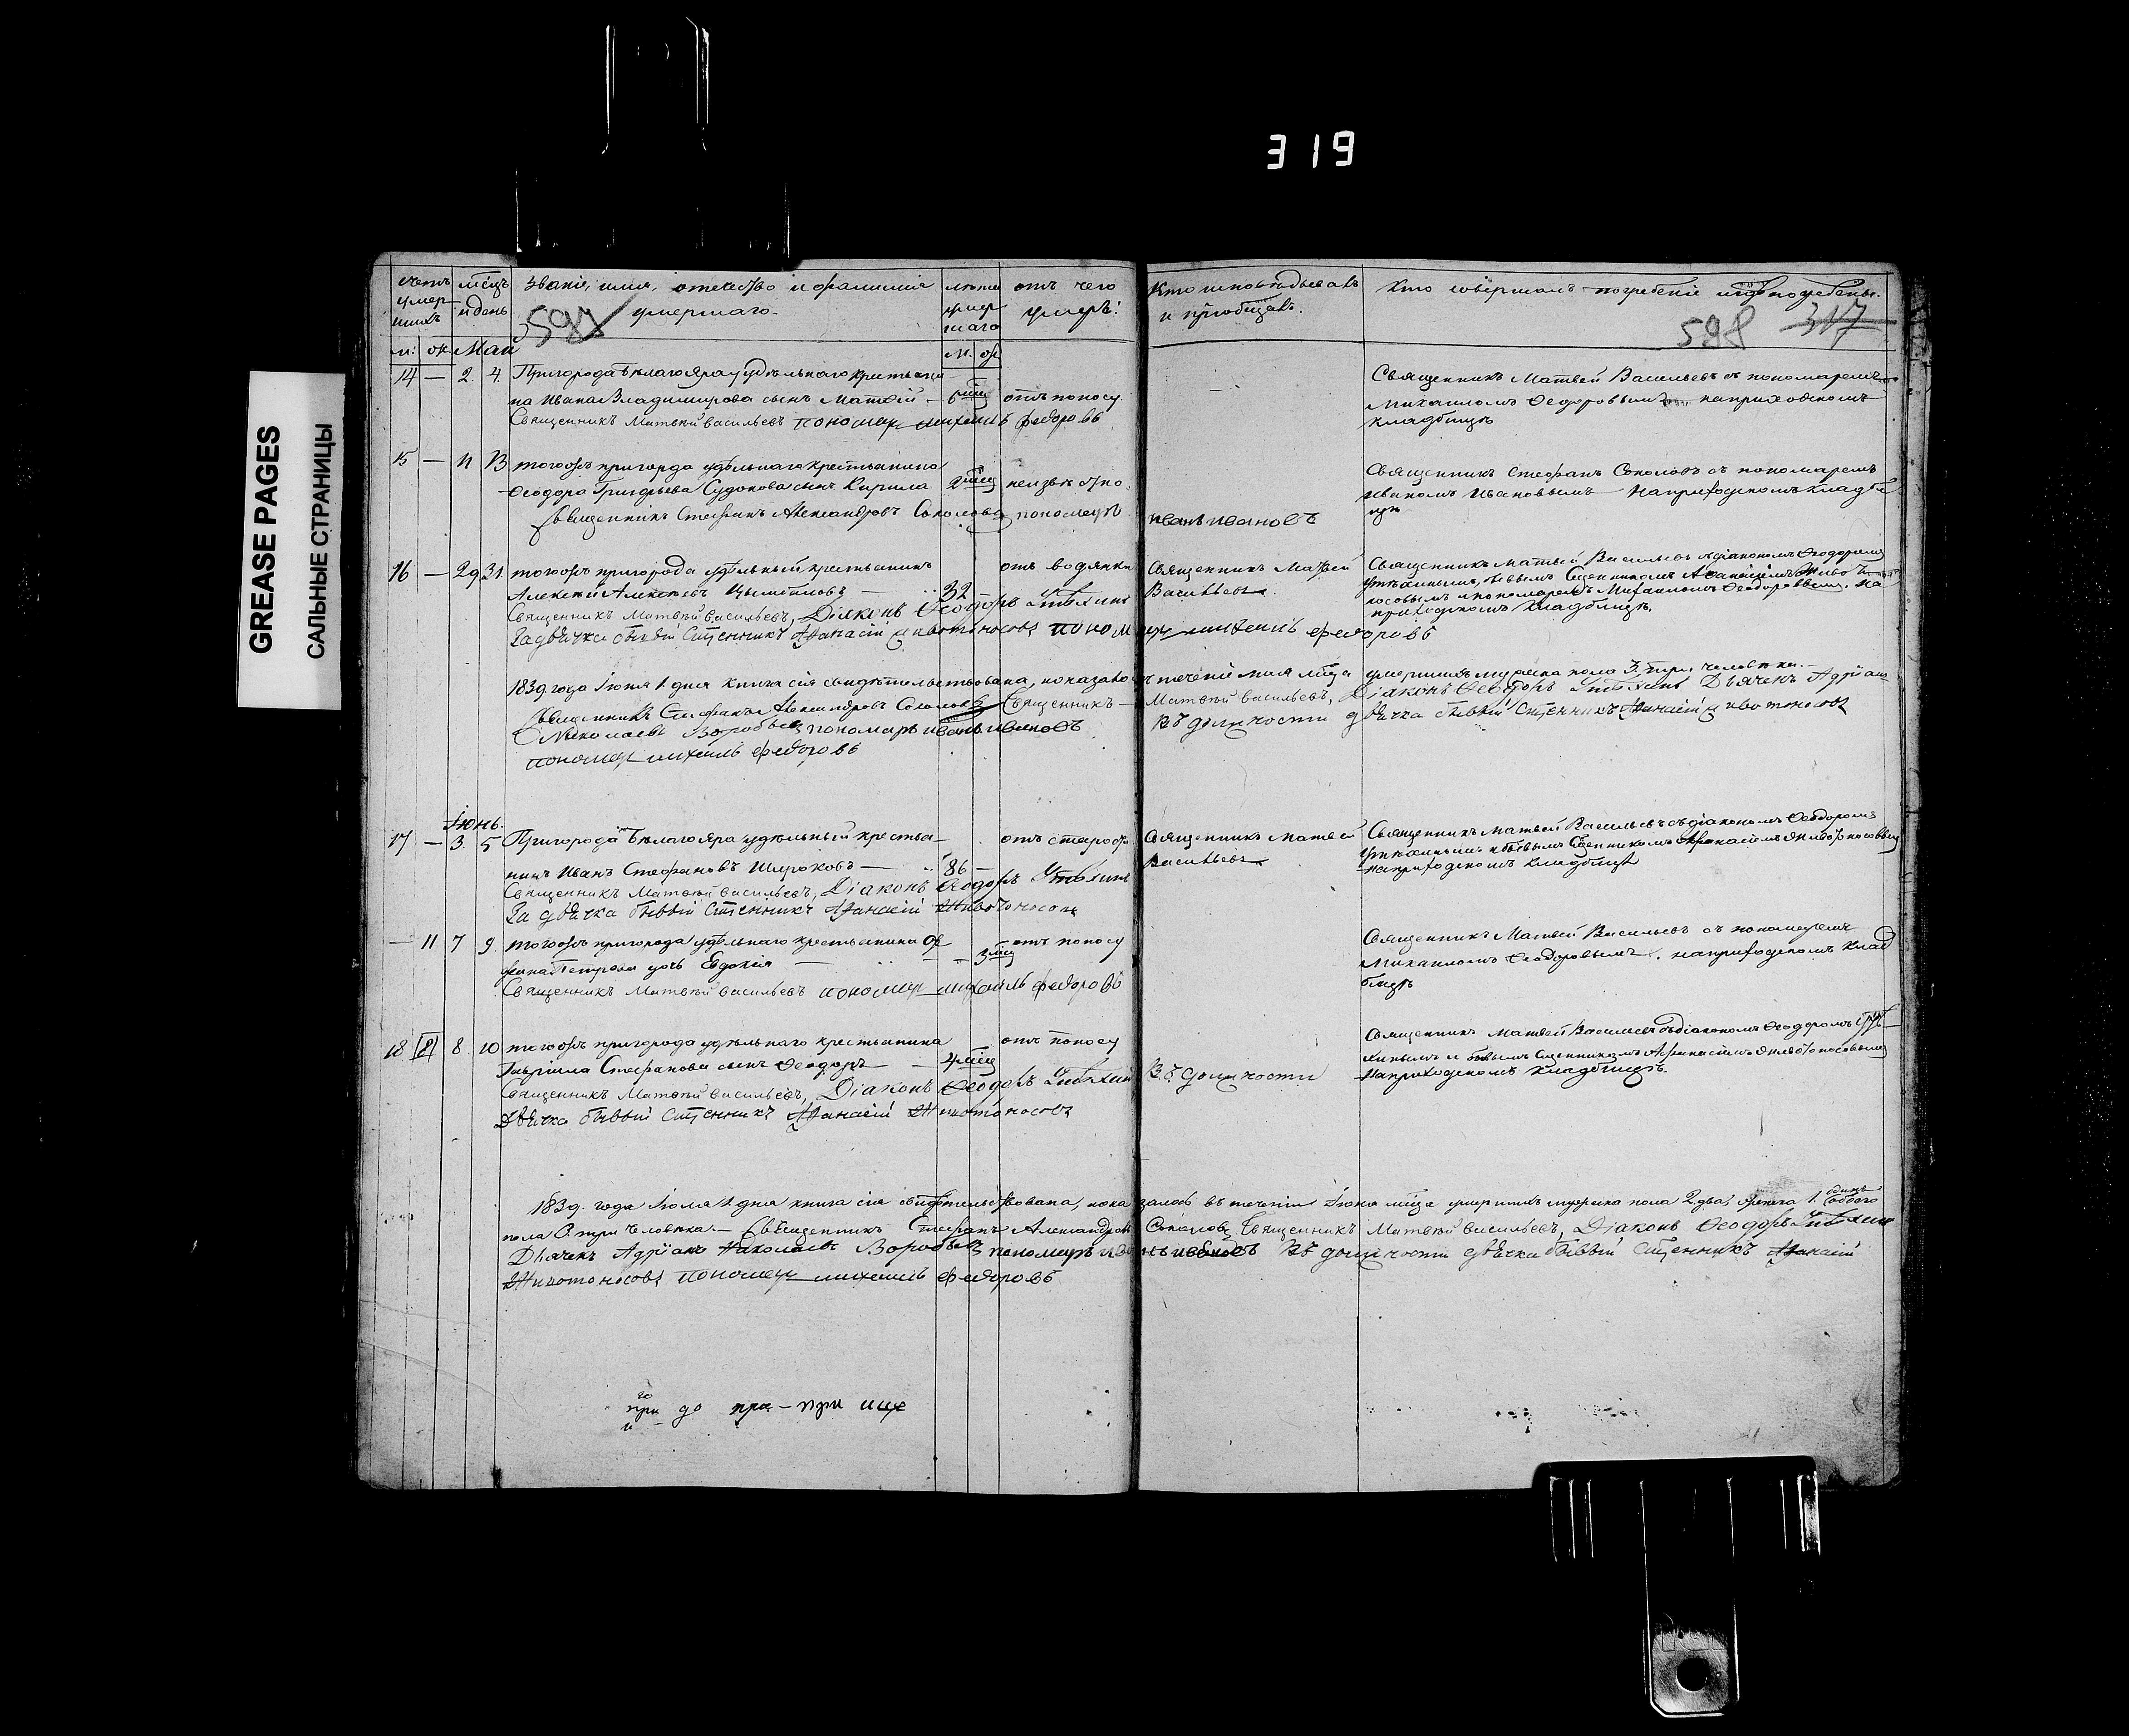 319
GREASE PAGES
САЛЬНЫЕ СТРАНИЦЫ
счетъ умершихъ
мѣсцъ и день
званіе, имя, отечество и фамилія умершаго.
лѣта умершаго
отъ чего умеръ.
Кто исповѣдывалъ и пріобщалъ.
Кто совершалъ погребеніе и гдѣ погребены.
598 317
м. ж. Май м. ж.
14 — 2. 4. Пригорода Бѣлаго Яра удѣльнаго крестьяни-
на Ивана Владимирова сынъ Матвѣй — 6 мѣц отъ поносу.
Священникъ Матвѣй Васильевъ пономарь михаилъ федоровъ
Священникъ Матвей Васильевъ съ пономаремъ
Михаиломъ Феодоровымъ на приходскомъ
кладбищѣ
15 — 11 13 тогожъ пригорода удѣльнаго крестьянина
Феодора Григорьева Судокова сынъ Кирила 2 мѣц неизвѣстно.
Священникъ Стефанъ Александровъ Соколовъ пономарь иванъ ивановъ
Священникъ Стефанъ Соколовъ съ пономаремъ
Иваномъ Ивановымъ на приходскомъ кладби
щѣ
16 — 29 31. тогожъ пригорода удѣльный крестьянинъ
Алексѣй Алексѣевъ — 32 — отъ водянки
Священникъ Матвѣй Васильевъ, Діаконъ Феодоръ Утѣхинъ
За дьячка бывый Сщенникъ Афанасій Животоносовъ пономарь михаилъ федоровъ
Священникъ Матвей
Васильевъ.
Священникъ Матвей Васильевъ съ діакономъ Феодоромъ
Утѣхинымъ, бывымъ Сщенникомъ Афанасіемъ Живото-
носовымъ и пономаремъ Михаиломъ Феодоровымъ. на
приходскомъ кладбищѣ.
1839 года Іюня 1 дня книга сія свидѣтельствована, показалось въ теченіи мая мѣца умершихъ мужеска пола 3. три человѣка.
Священникъ Стефанъ Александровъ Соколовъ Священникъ Матвѣй Васильевъ, Діаконъ Феодоръ Утѣхинъ Дьячекъ Адріанъ
Николаевъ Воробьевъ пономарь иванъ ивановъ Въ должности дьячка бывый Сщенникъ Афанасій Животоносовъ
пономарь михаилъ федоровъ
Іюнь.
17 — 3. 5 Пригорода Бѣлаго Яра удѣльный крестья-
нинъ Иванъ Стефановъ Широковъ — 86 — отъ старос.
Священникъ Матвѣй Васильевъ, Діаконъ Феодоръ Утѣхинъ
За дьячка бывый Сщенникъ Афанасій Животоносовъ
Священникъ Матвей
Васильевъ
Священникъ Матвей Васильевъ съ діакономъ Феодоромъ
Утѣхинымъ и бывымъ Сщенникомъ Афанасіемъ Животоносовымъ
на приходскомъ кладбищѣ
— 11 7 9. тогожъ пригорода удѣльнаго крестьянина
Петрова дочь Евдокія — 3 мѣц отъ поносу
Священникъ Матвѣй Васильевъ пономарь михаилъ федоровъ
Священникъ Матвей Васильевъ съ пономаремъ
Михаиломъ Феодоровымъ. на приходскомъ клад
бищѣ
18 8 10 тогожъ пригорода удѣльнаго крестьянина
Гавріила Стефанова сынъ Феодоръ — 4 мѣц отъ поносу
Священникъ Матвѣй Васильевъ, Діаконъ Феодоръ Утѣхинъ Въ должности
Дьячка бывый Сщенникъ Афанасій Животоносовъ
Священникъ Матвей Васильевъ съ діакономъ Феодоромъ Утѣ-
хинымъ и бывымъ Сщенникомъ Афанасіемъ Животоносовымъ
на приходскомъ кладбищѣ.
1839. года Іюля 1 дня книга сія свидѣтельствована, показалось въ теченіи Іюня мѣца умершихъ мужеска пола 2 два, женска 1. одинъ обоего
пола 3. три человѣка. — Священникъ Стефанъ Александровъ Соколовъ Священникъ Матвѣй Васильевъ, Діаконъ Феодоръ Утѣхинъ
Дьячекъ Адріанъ Николаевъ Воробьевъ пономарь иванъ ивановъ Въ должности дьячка бывый Сщенникъ Афанасій
Животоносовъ пономарь михаилъ федоровъ
го
при до при — при ище